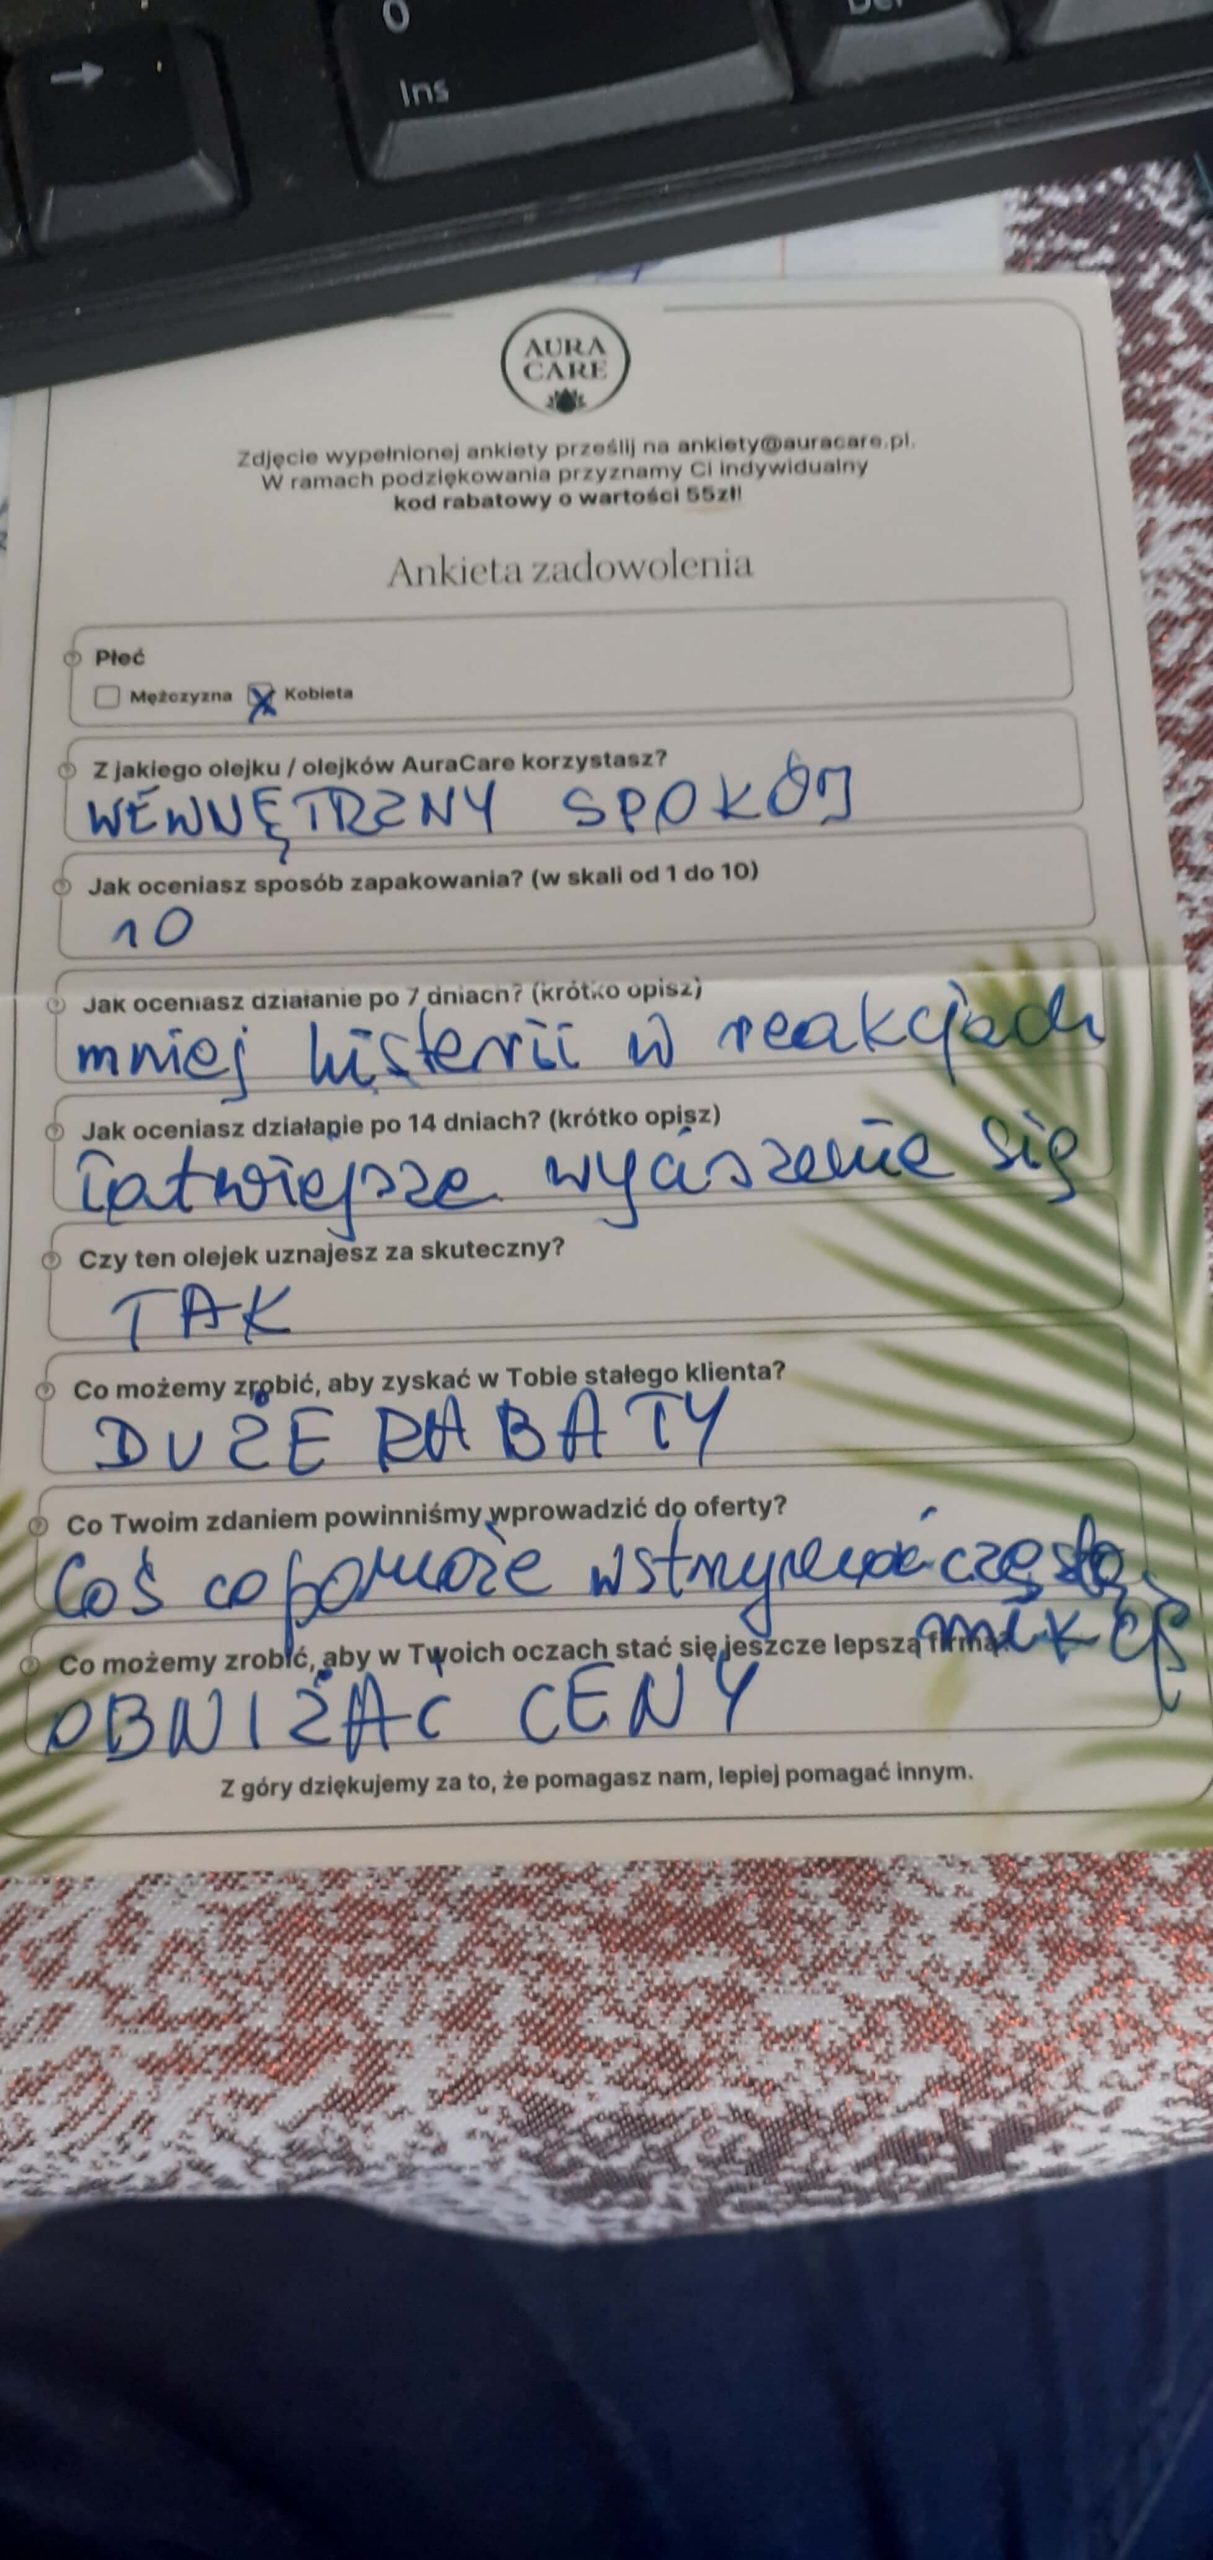 0
Ins
AURA
CARE
Zdjęcie wypełnionej ankiety prześlij na ankiety@auracare.pl.
W ramach podziękowania przyznamy Ci indywidualny
kod rabatowy o wartości 55zł!
Ankieta zadowolenia
Płeć
Mężczyzna X Kobieta
Z jakiego olejku / olejków AuraCare korzystasz?
WEWNĘTRZNY SPOKÓJ
Jak oceniasz sposób zapakowania? (w skali od 1 do 10)
10
Jak oceniasz działanie po 7 dniach? (krótko opisz)
mniej histerii w reakcjach
Jak oceniasz działanie po 14 dniach? (krótko opisz)
łatwiejsze wyciszenie się
Czy ten olejek uznajesz za skuteczny?
TAK
Co możemy zrobić, aby zyskać w Tobie stałego klienta?
DUŻE RABATY
Co Twoim zdaniem powinniśmy wprowadzić do oferty?
Coś co pomoże wstrzymać częstą
mikcję
Co możemy zrobić, aby w Twoich oczach stać się jeszcze lepszą firmą?
OBNIŻAĆ CENY
Z góry dziękujemy za to, że pomagasz nam, lepiej pomagać innym.